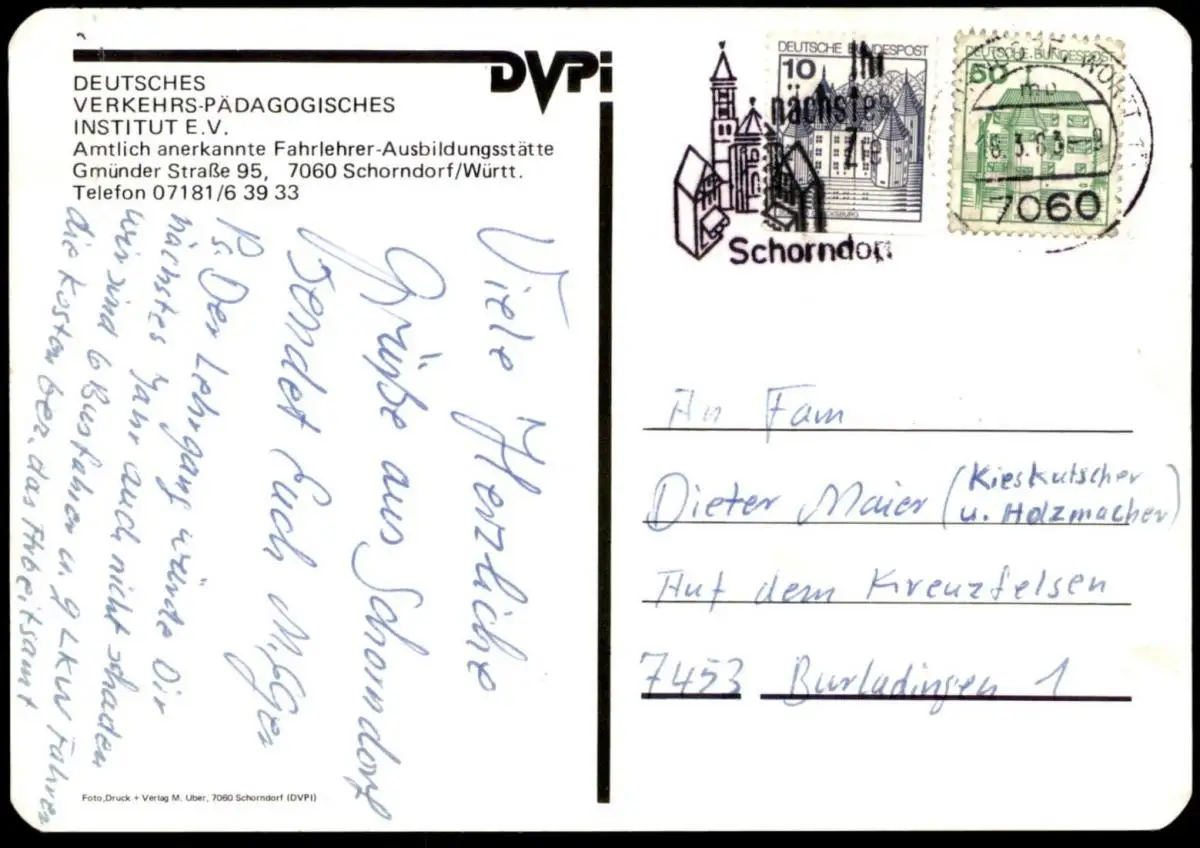 DVPi
DEUTSCHES
VERKEHRS-PÄDAGOGISCHES
INSTITUT E.V.
Amtlich anerkannte Fahrlehrer-Ausbildungsstätte
Gmünder Straße 95, 7060 Schorndorf/Württ.
Telefon 07181/6 39 33
Viele Herzliche
Grüße aus Schorndorf
Sendet Euch
P.S. Der Lehrgang würde Dir
nächstes Jahr auch nicht schaden
wir sind 6 Busfahrer u. 9 LKW Fahrer
die Kosten bez. das Arbeitsamt
Foto, Druck + Verlag M. Uber, 7060 Schorndorf (DVPI)
DEUTSCHE BUNDESPOST
10
DEUTSCHE BUNDESPOST
50
Ihr
nächstes
Schorndorf
7060
An Fam
Dieter Maier (Kieskutscher
u. Holzmacher)
Auf dem Kreuzfelsen
7453 Burladingen 1